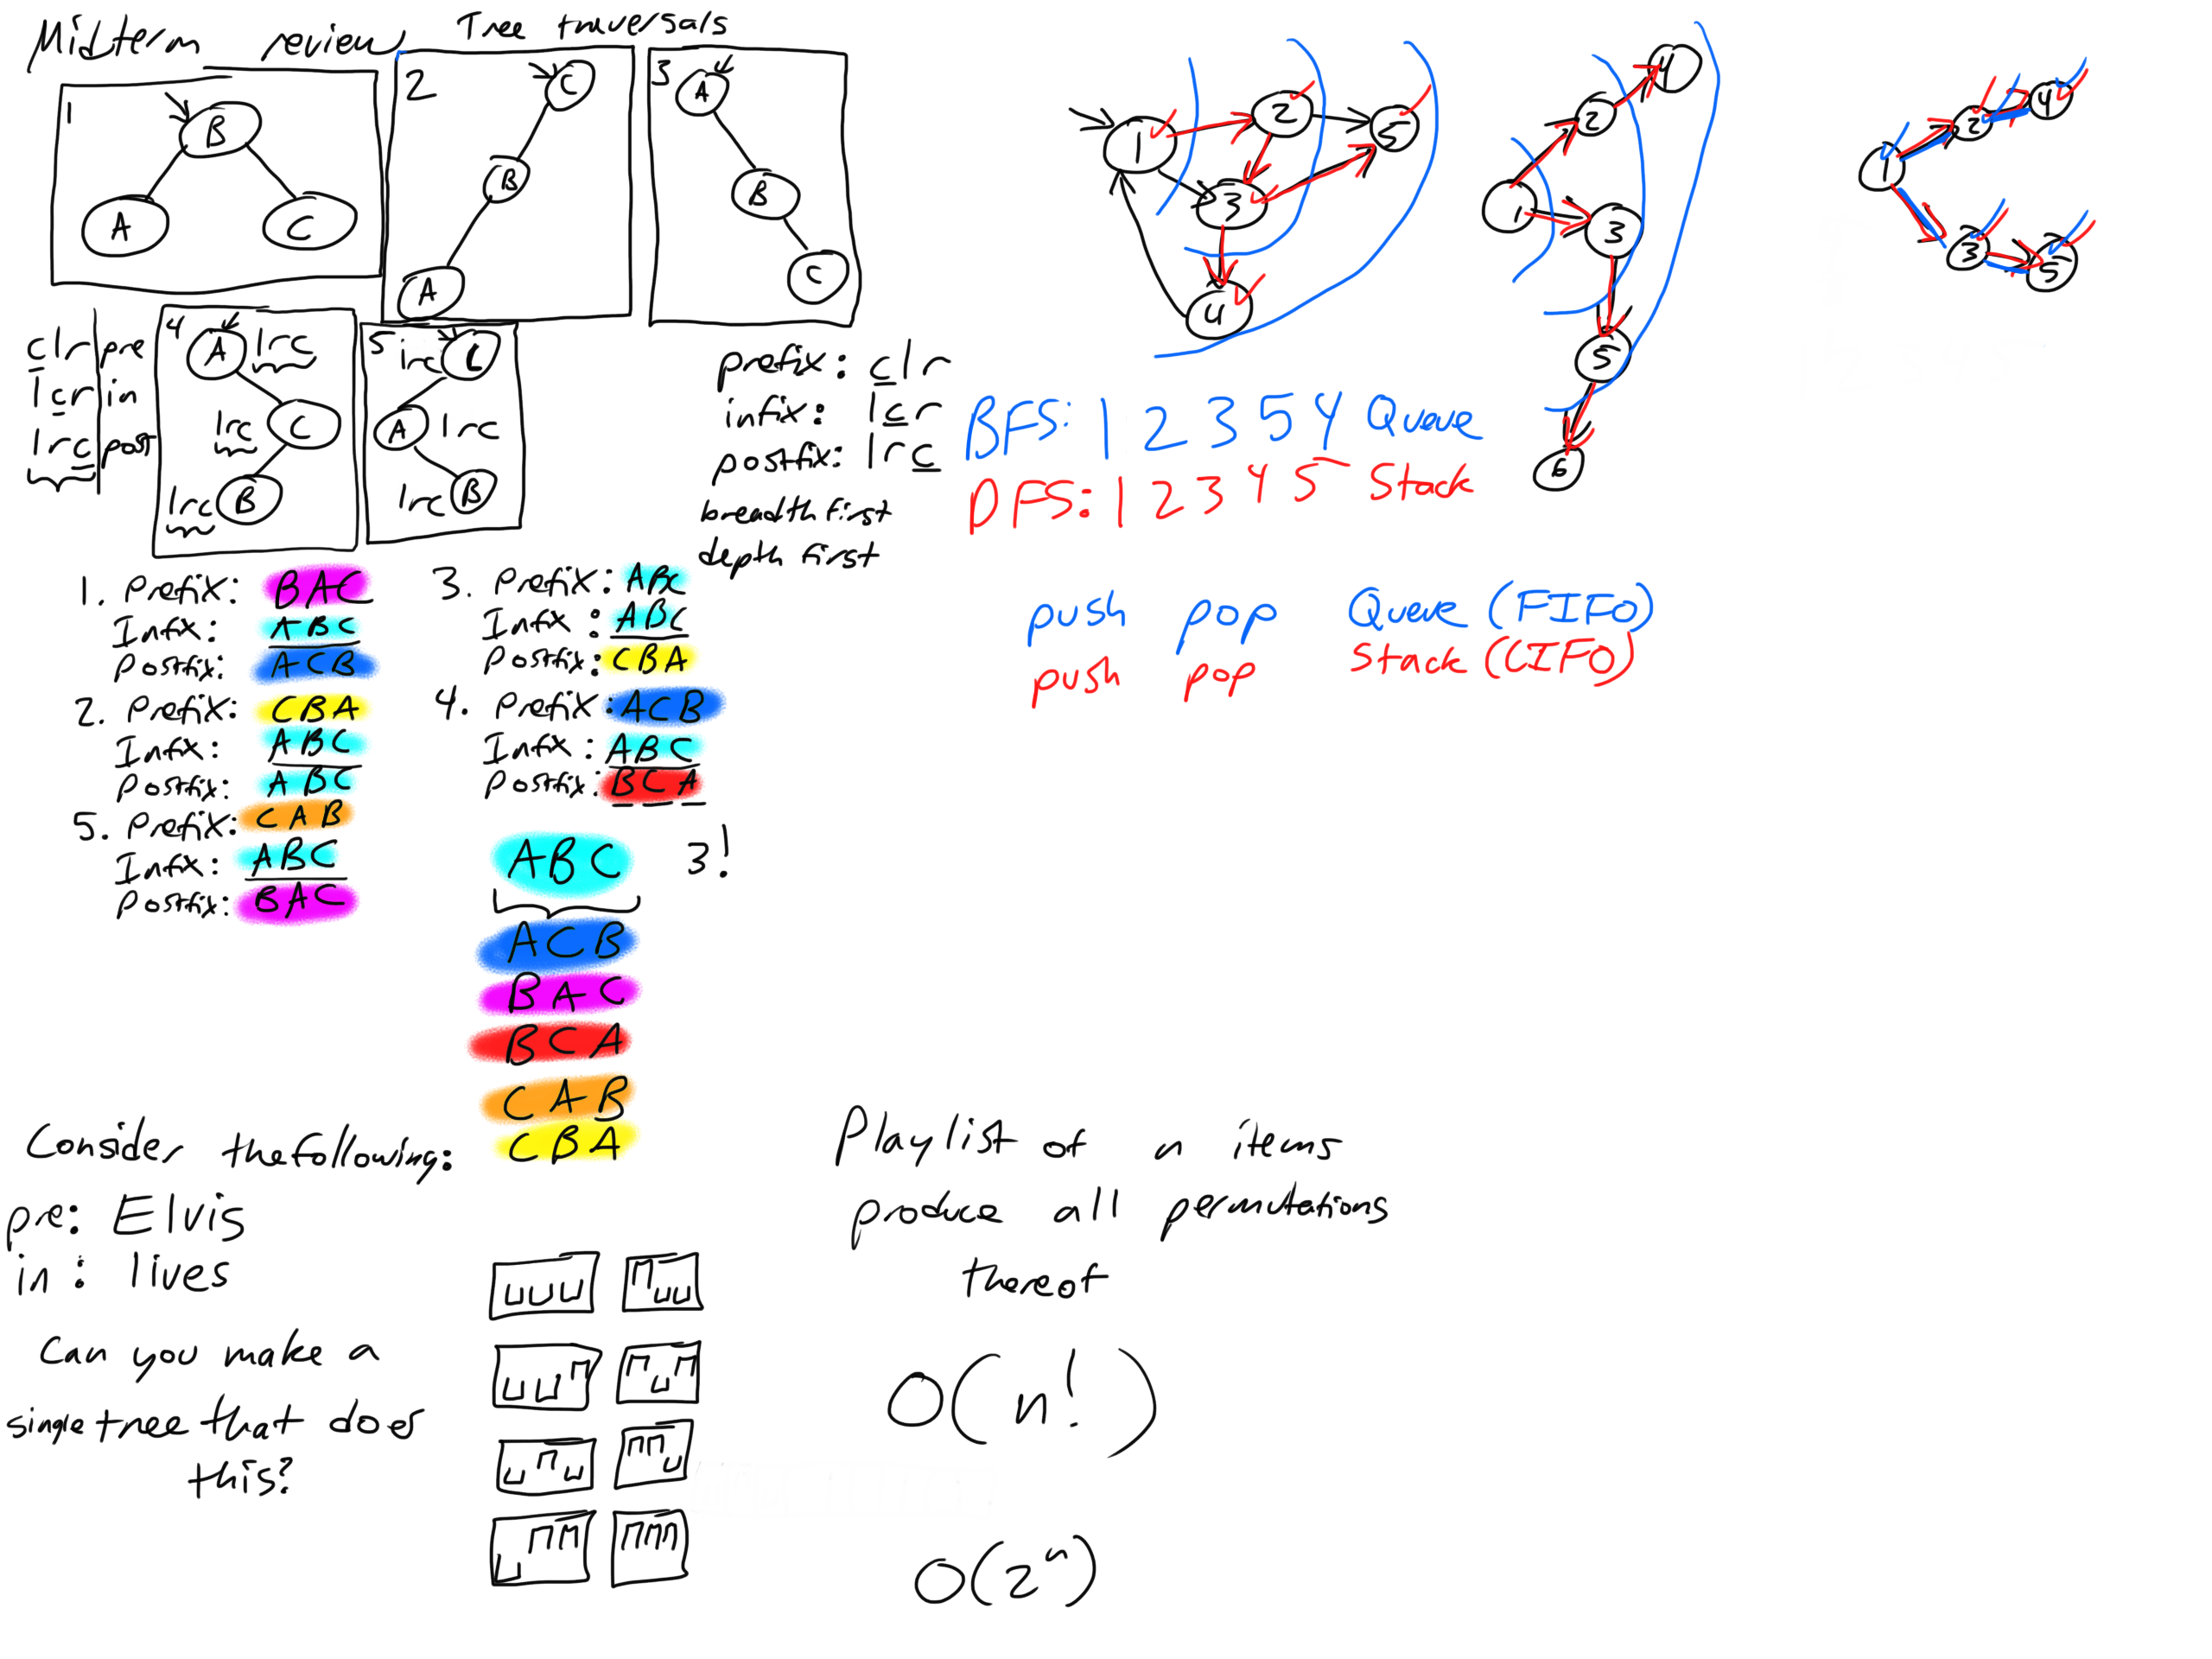 Midterm review
Tree traversals
1
B
A
C
2
C
B
A
3
A
B
C
clr pre
lcr in
lrc post
4
A lrc
lrc C
lrc B
5
lrc C
A lrc
lrc B
prefix: clr
infix: lcr
postfix: lrc
breadth first
depth first
1
2
5
3
4
BFS: 1 2 3 5 4 Queue
DFS: 1 2 3 4 5 Stack
push pop Queue (FIFO)
push pop Stack (LIFO)
4
2
1
3
5
6
4
2
1
3
5
1. Prefix: BAC
Infix: ABC
Postfix: ACB
2. Prefix: CBA
Infix: ABC
Postfix: ABC
5. Prefix: CAB
Infix: ABC
Postfix: BAC
3. Prefix: ABC
Infix: ABC
Postfix: CBA
4. Prefix: ACB
Infix: ABC
Postfix: BCA
ABC 3!
ACB
BAC
BCA
CAB
CBA
Consider the following:
pre: Elvis
in: lives
Can you make a
single tree that does
this?
Playlist of n items
produce all permutations
thereof
O(n!)
O(2^n)